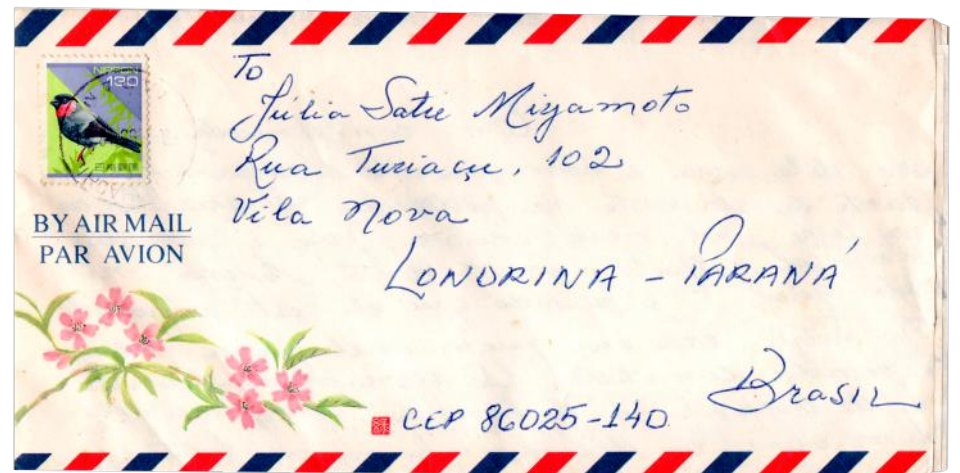 NIPPON
130
日本郵便
BY AIR MAIL
PAR AVION
To
Júlia Satie Miyamoto
Rua Turiaçu, 102
Vila Nova
LONDRINA - PARANÁ
Brasil
CEP 86025-140